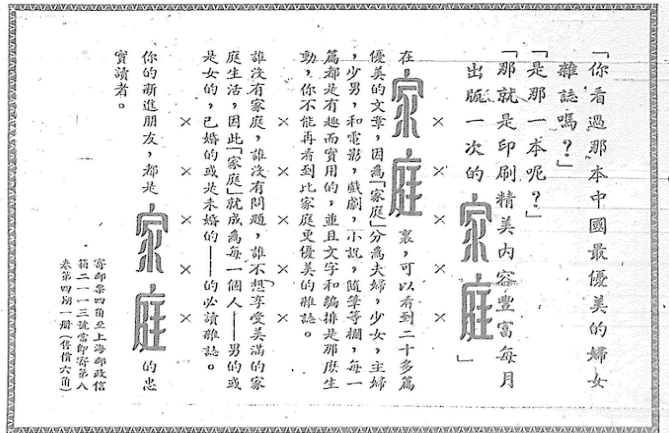 「你看過那本中國最優美的婦女
雜誌嗎？」
「是那一本呢？」
「那就是印刷精美內容豐富每月
出版一次的家庭」
在家庭裏，可以看到二十多篇
優美的文章，因爲「家庭」分爲夫婦，少女，主婦
，少男，和電影，戲劇，小說，隨筆等欄，每一
篇都是有趣而實用的，並且文字和編排是那麽生
動，你不能再看到比家庭更優美的雜誌。
× × × × ×
誰沒有家庭，誰沒有問題，誰不想享受美滿的家
庭生活，因此「家庭」就成爲每一個人——男的或
是女的，已婚的或是未婚的——的必讀雜誌。
× × × × ×
你的漸進朋友，都是家庭的忠
實讀者。
寄郵票四角至上海郵政信
箱二一一三號當卽寄第八
卷第四期一册（售價六角）